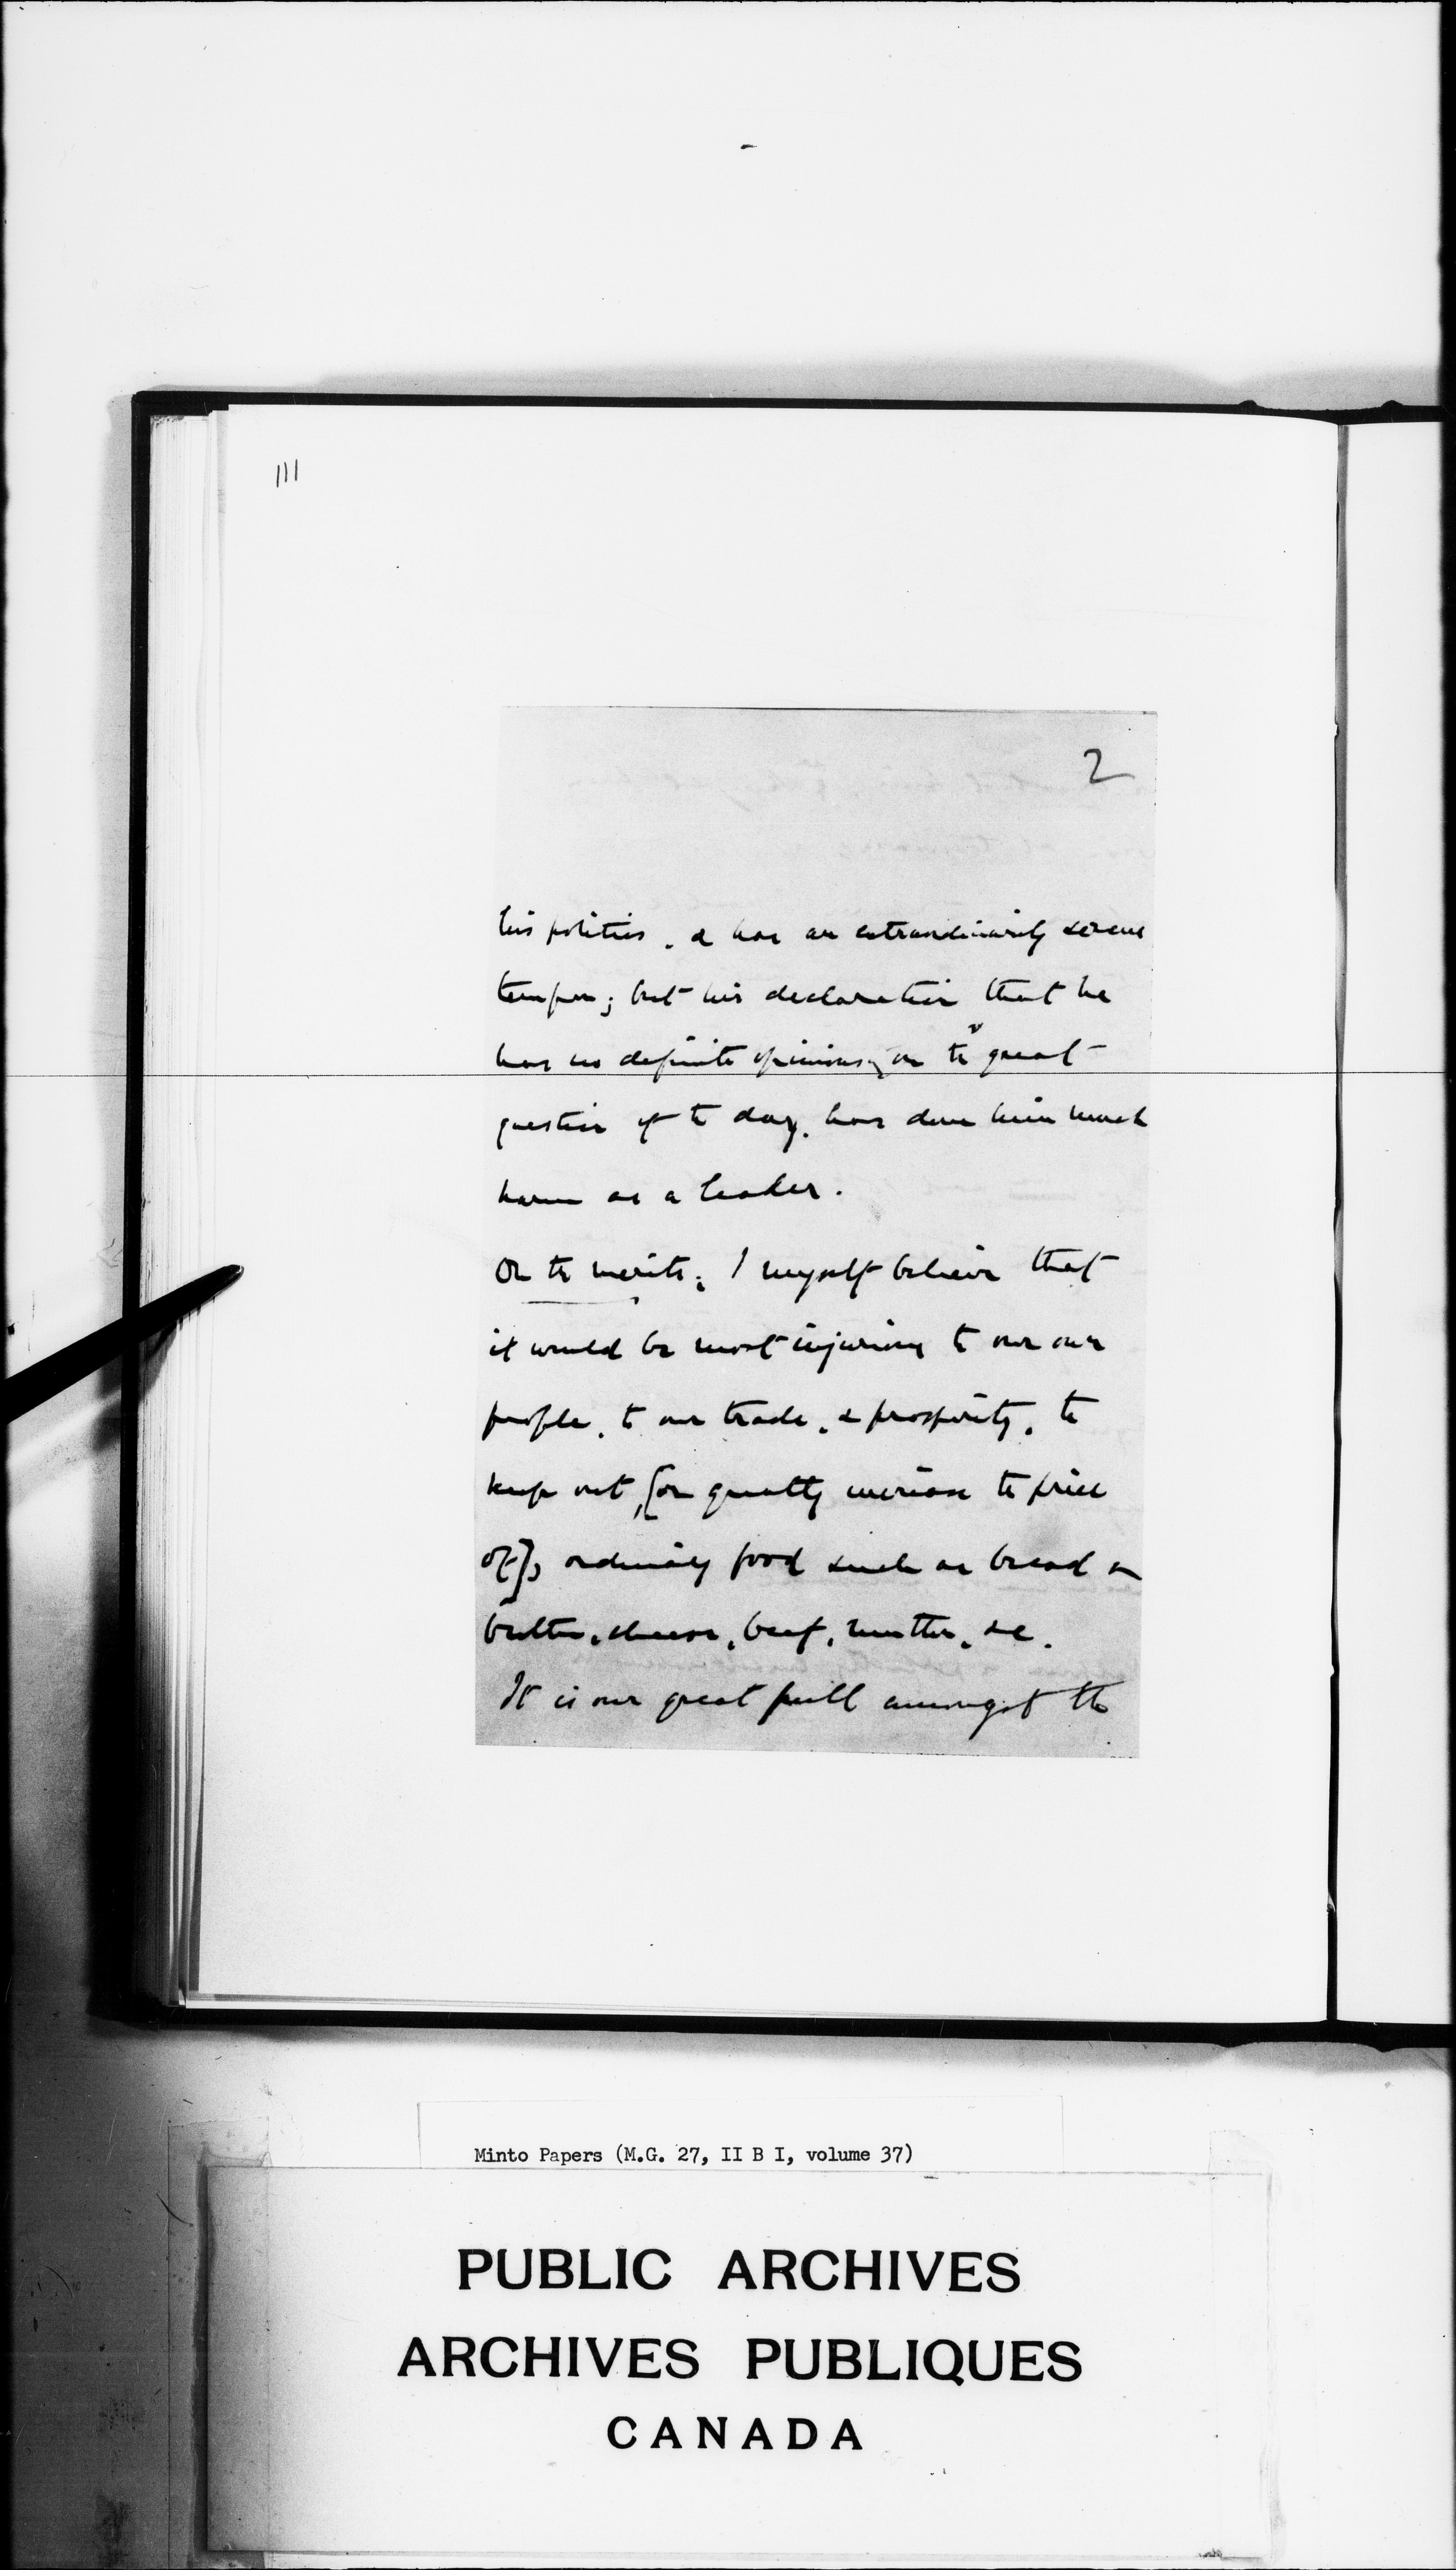 111
2
his politics, & has an extraordinarily serene
temper; but his declaration that he
has no definite opinions, on the great
question of the day, has done him much
harm as a leader.
On the merits; I myself believe that
it would be most injurious to our own
people, to our trade, & prosperity, to
keep out, [or greatly increase the price
of], ordinary food such as bread or
butter, cheese, beef, mutton, &c.
It is our great pull amongst the
Minto Papers (M.G. 27, II B I, volume 37)
PUBLIC ARCHIVES
ARCHIVES PUBLIQUES
CANADA